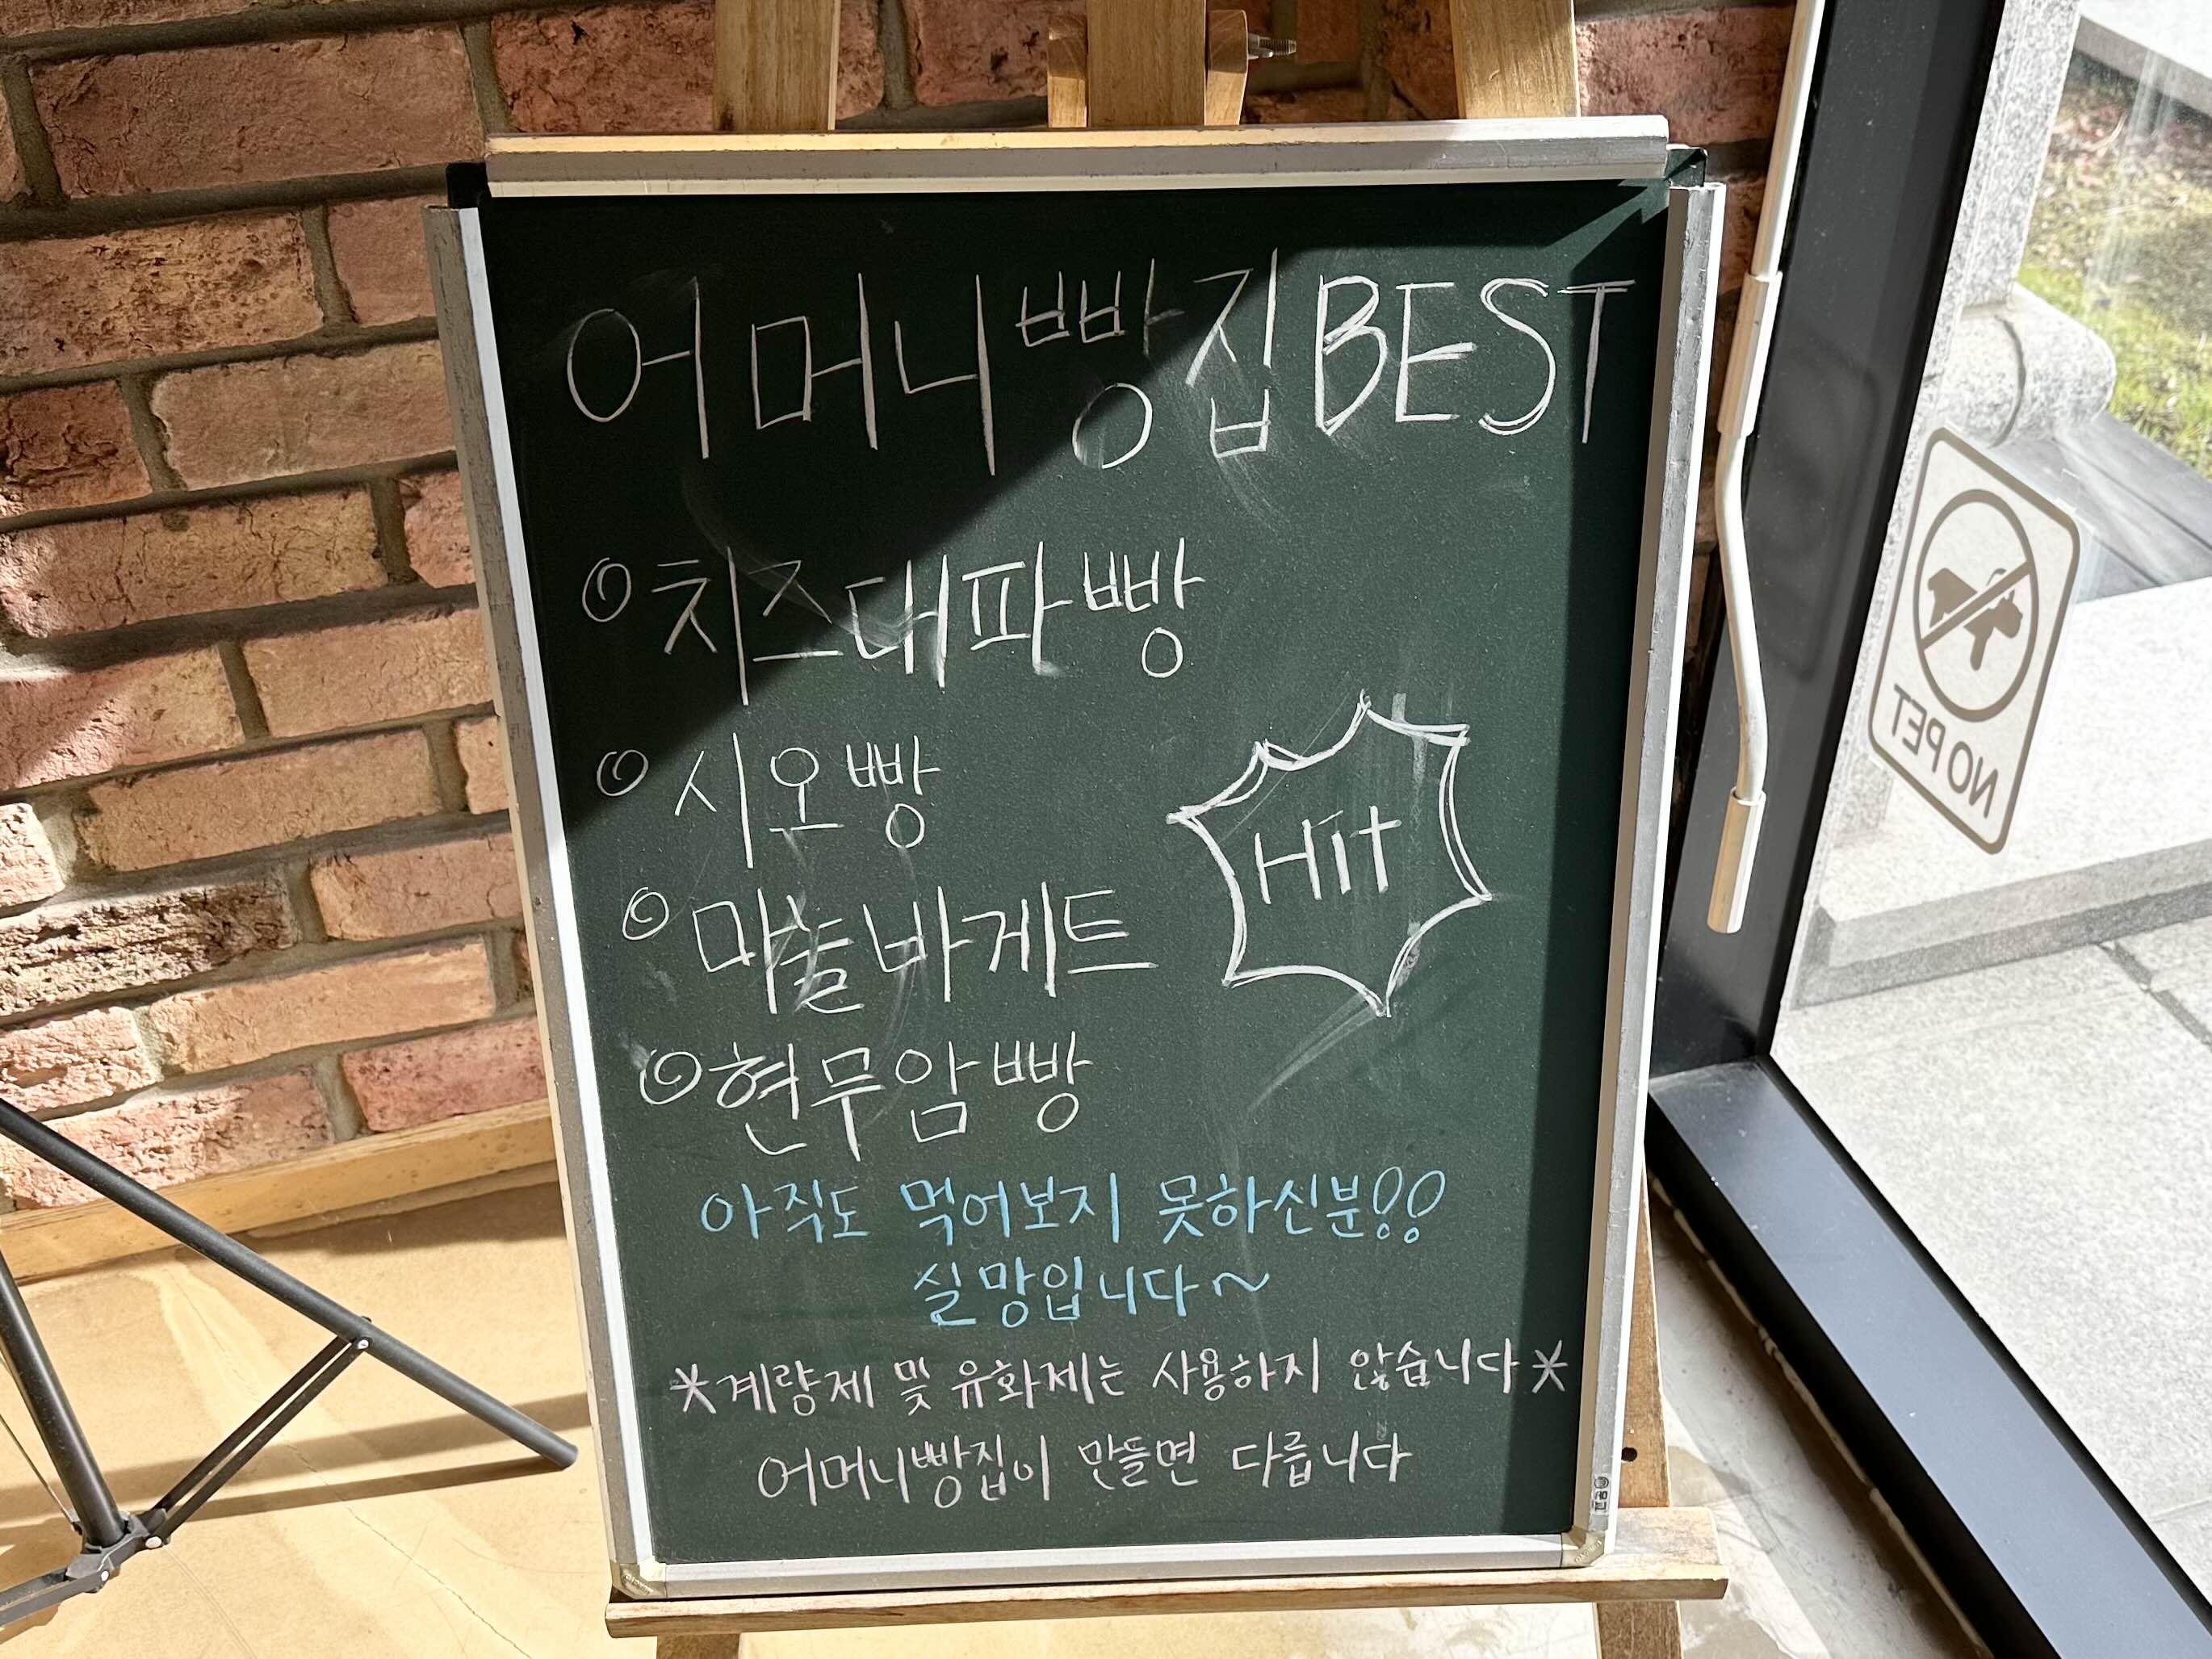 어머니빵집BEST
◎ 치즈대파빵
◎ 시오빵
◎ 마늘바게트
Hit
◎ 현무암빵
아직도 먹어보지 못하신분!!
실망입니다~
*계량제 및 유화제는 사용하지 않습니다*
어머니빵집이 만들면 다릅니다
NO PET